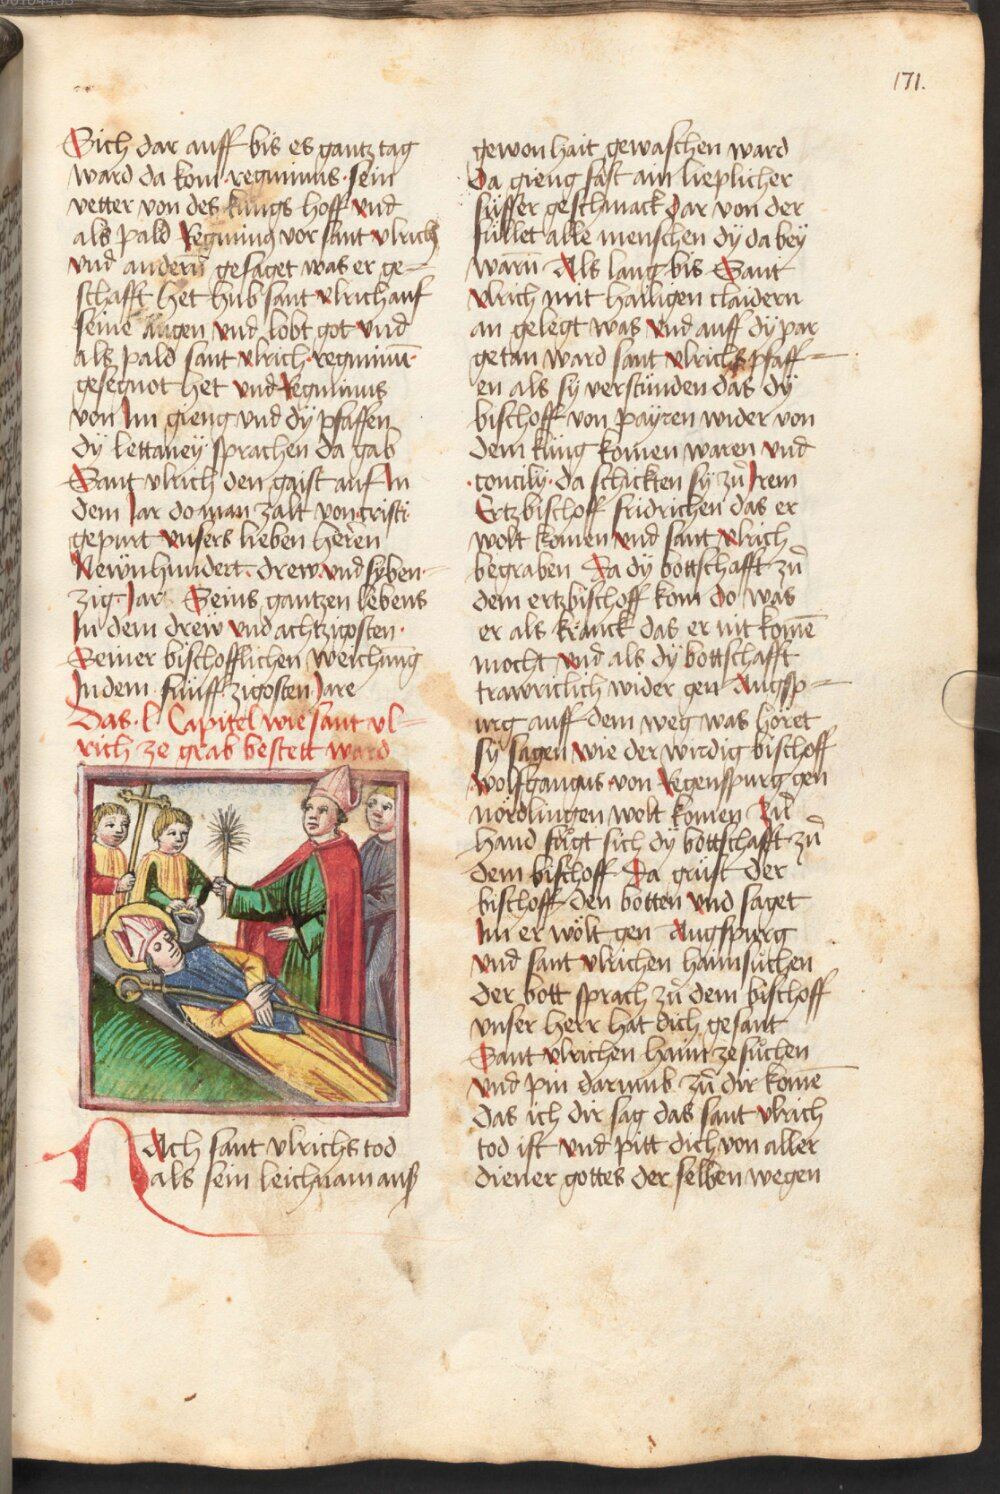 171.
Sich dar auff bis es gantz tag
ward da kom regininus sein
vetter von des kungs hoff vnd
als pald Regining vor sant vlrich
vnd andern̄ gesaget was er ge=
schafft het hub sant vlrich auf
seine augen vnd lobt got vnd
als pald sant vlrich reginum̄
gesegnot het vnd Regininus
von Im gieng vnd dÿ pfaffen
dÿ lettaneÿ sprachen da gab
Sant vlrich den gaist auf In
dem Jar do man zalt von cristi
gepurt vnsers lieben heren
Newnhundert. drew. vnd syben
zig. Jar Seins gantzen lebens
In dem drew vnd achtzigosten.
Seiner bischofflichen weichung
In dem funffzigosten Jare
Das .l. Capitel wie sant vl=
rich ze grab bestett ward
Nach sant vlrichs tod
als sein leichnam auß
gewonhait gewaschen ward
Da gieng fast ain lieplicher
süsser geschmack dar von der
füllet alle menschen dÿ da bey
warn̄ Als lang bis Sant
vlrich mit hailigen claidern
an gelegt was vnd auff dÿ par
getan ward sant vlrichs pfaff=
en als sÿ verstunden das dÿ
bischoff von payren wider von
dem kung komen waren vnd
concily. da schickten sÿ zů Irem
Ertzbischoff fridrichen das er
wolt komen vnd sant vlrich
begraben Da dÿ bottschafft zů
dem ertzbischoff kom do was
er als kranck das er nit kome̅
mocht vnd als dÿ bottschafft
trawriclich wider gen Augsp=
urg auff dem weg was horet
sÿ sagen wie der wirdig bischoff
wolfgangus von Regenspurg gen
nördlingen wolt komen Zů
hand fůgt sich dÿ bottschafft zů
dem bischoff Da grüst der
bischoff den botten vnd saget
Im er wölt gen Augspurg
vnd sant vlrichen haimsůchen
der bott sprach zů dem bischoff
vnser herr hat dich gesant
Sant vlrichen haim ze sůchen
vnd pin darumb zů dir kome̅
das ich dir sag das sant vlrich
tod ist vnd pitt dich von aller
diener gottes der selben wegen